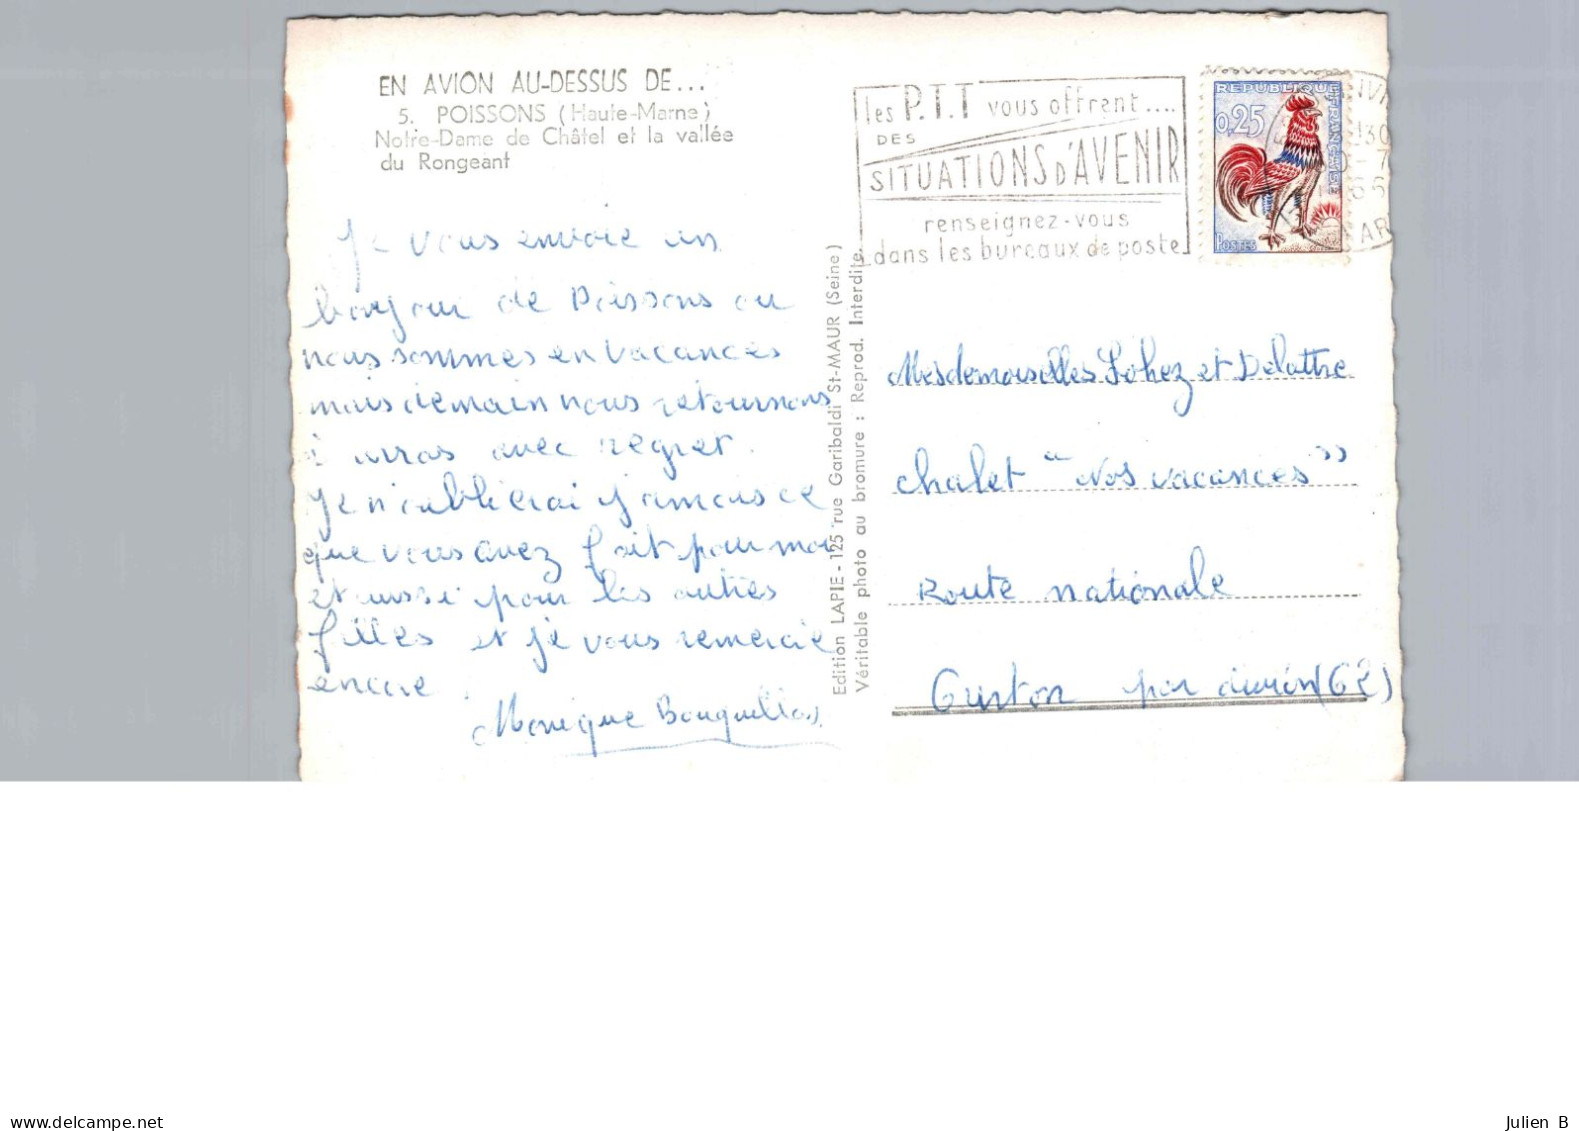 EN AVION AU-DESSUS DE...
5. POISSONS (Haute-Marne)
Notre-Dame de Châtel et la vallée
du Rongeant
Je vous envoie un
bonjour de Poissons ou
nous sommes en vacances
mais demain nous retournons
à arras avec regret.
Je n'oublierai jamais ce
que vous avez fait pour moi
et aussi pour les autres
filles et je vous remercie
encore.
Monique
Edition LAPIE - 125 rue Garibaldi St-MAUR (Seine)
Véritable photo au bromure : Reprod. Interdite.
les P.T.T vous offrent....
DES
SITUATIONS D'AVENIR
renseignez-vous
dans les bureaux de poste
REPUBLIQUE
FRANÇAISE
0,25
POSTES
Mesdemoiselles et Delattre
chalet "Nos vacances"
Route nationale
par (62)
www.delcampe.net
Julien B